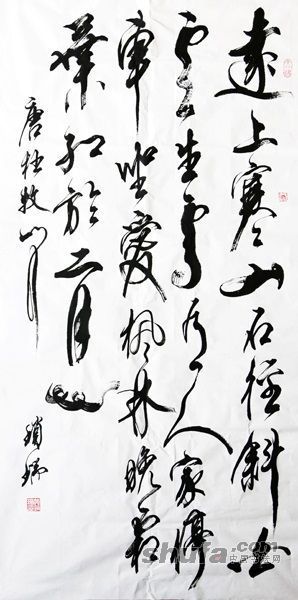 遠上寒山石徑斜白
云生處有人家停
車坐愛楓林晚霜
葉紅於二月花
唐杜牧山行
shufa.com